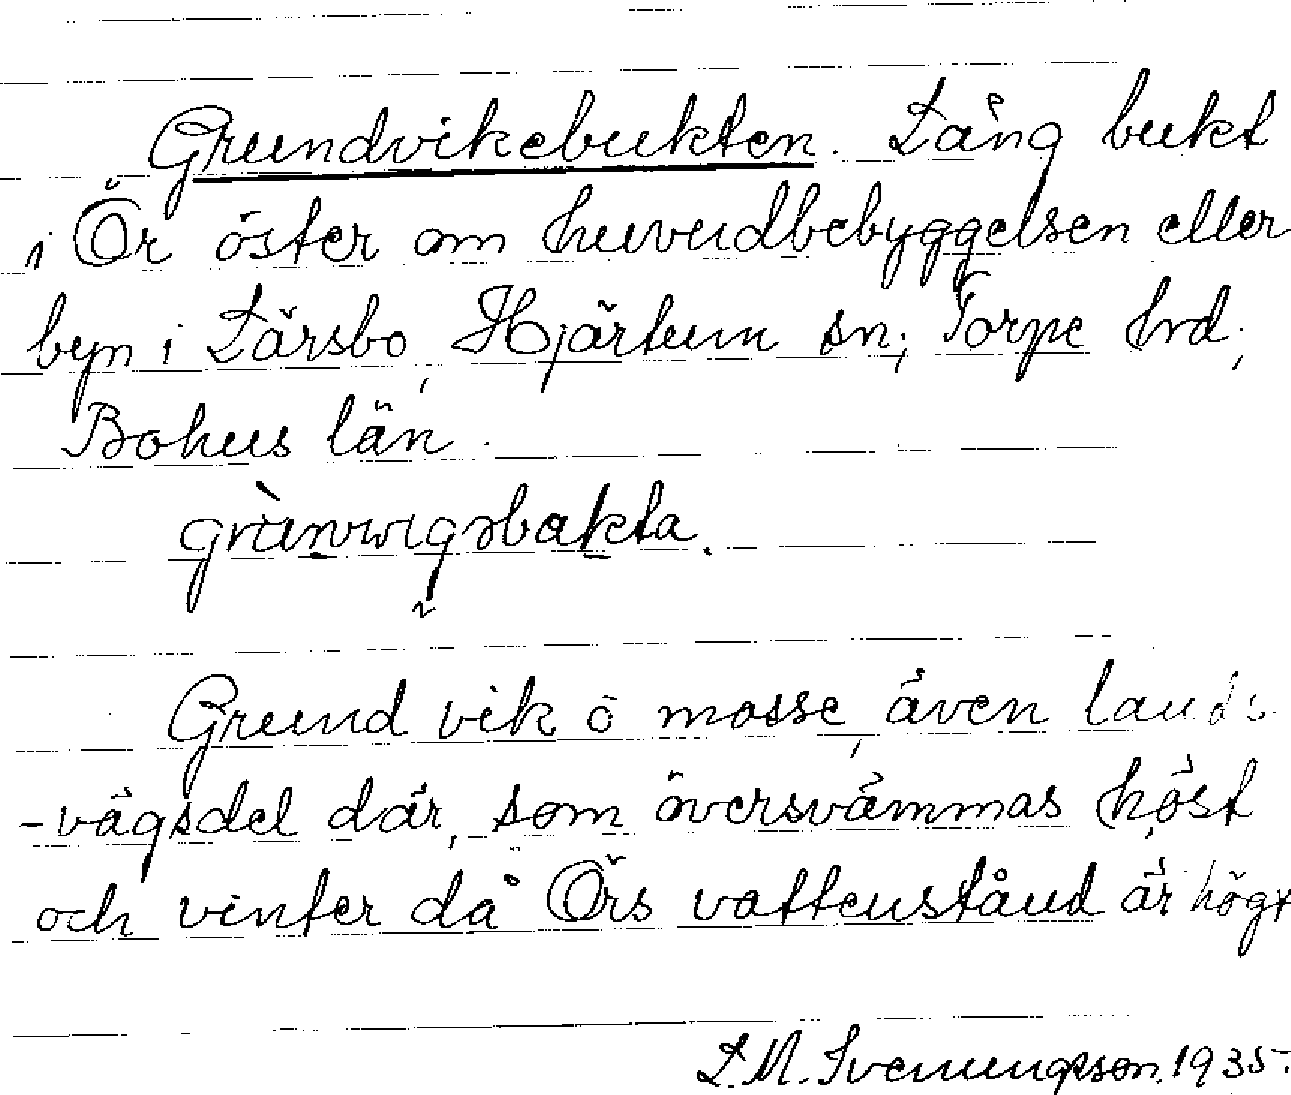 Grundvikebukten. Lång bukt
i Ör öster om huvudbebyggelsen eller
byn i Lärsbo, Hjärtum sn; Torpe hrd;
Bohus län.
grùnvigsbakta.
Grund vik o mosse, även lands
-vägsdel där, som översvämmas höst
och vinter då Örs vattenstånd är högt
L.M. Svenungsson. 1935.